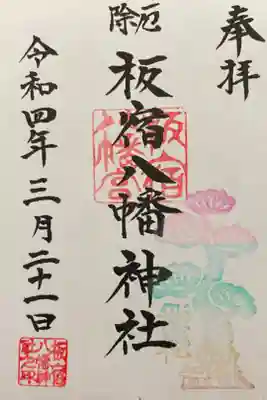 奉拝
厄除
板宿八幡神社
令和四年三月二十一日
板宿八幡宮